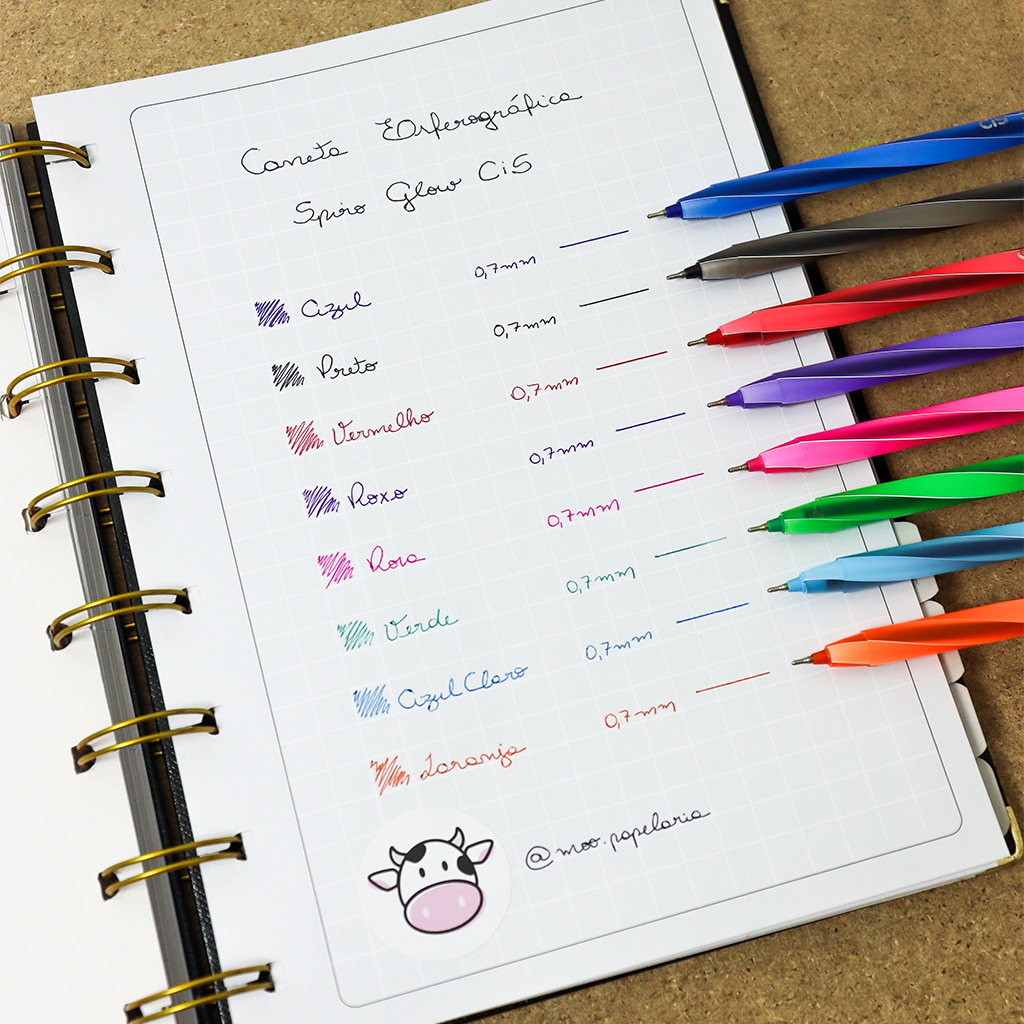 Caneta Esferográfica
Spiro Glow CiS
Azul 0,7mm
Preto 0,7mm
Vermelho 0,7mm
Roxo 0,7mm
Rosa 0,7mm
Verde 0,7mm
Azul Claro 0,7mm
Laranja 0,7mm
@moo.papelaria
CiS